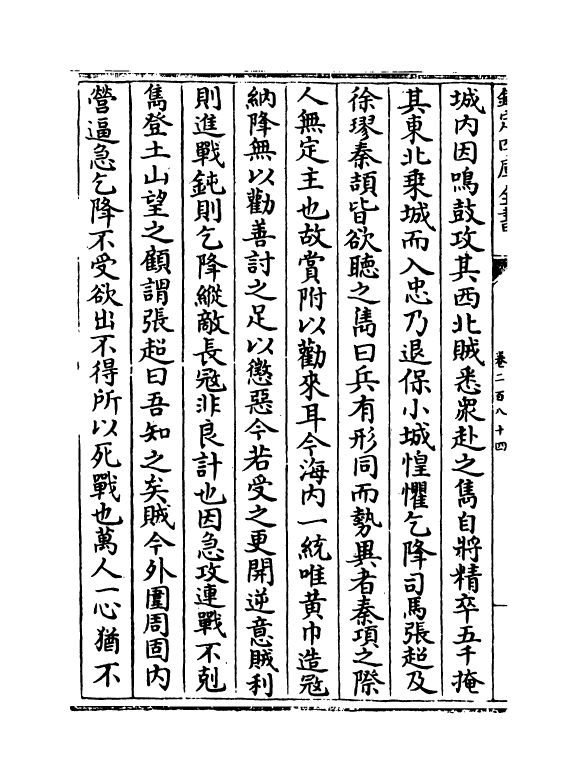 欽定四庫全書
卷二百八十四
城内因鳴鼓攻其西北賊悉衆赴之雋自將精卒五千掩
其東北乗城而入忠乃退保小城惶懼乞降司馬張超及
徐璆秦頡皆欲聽之雋曰兵有形同而勢異者秦項之際
人無定主也故賞附以勸來耳今海内一統唯黄巾造冦
納降無以勸善討之足以懲惡今若受之更開逆意賊利
則進戰鈍則乞降縱敵長冦非良計也因急攻連戰不剋
雋登土山望之顧謂張超曰吾知之矣賊今外圍周固内
營逼急乞降不受欲出不得所以死戰也萬人一心猶不